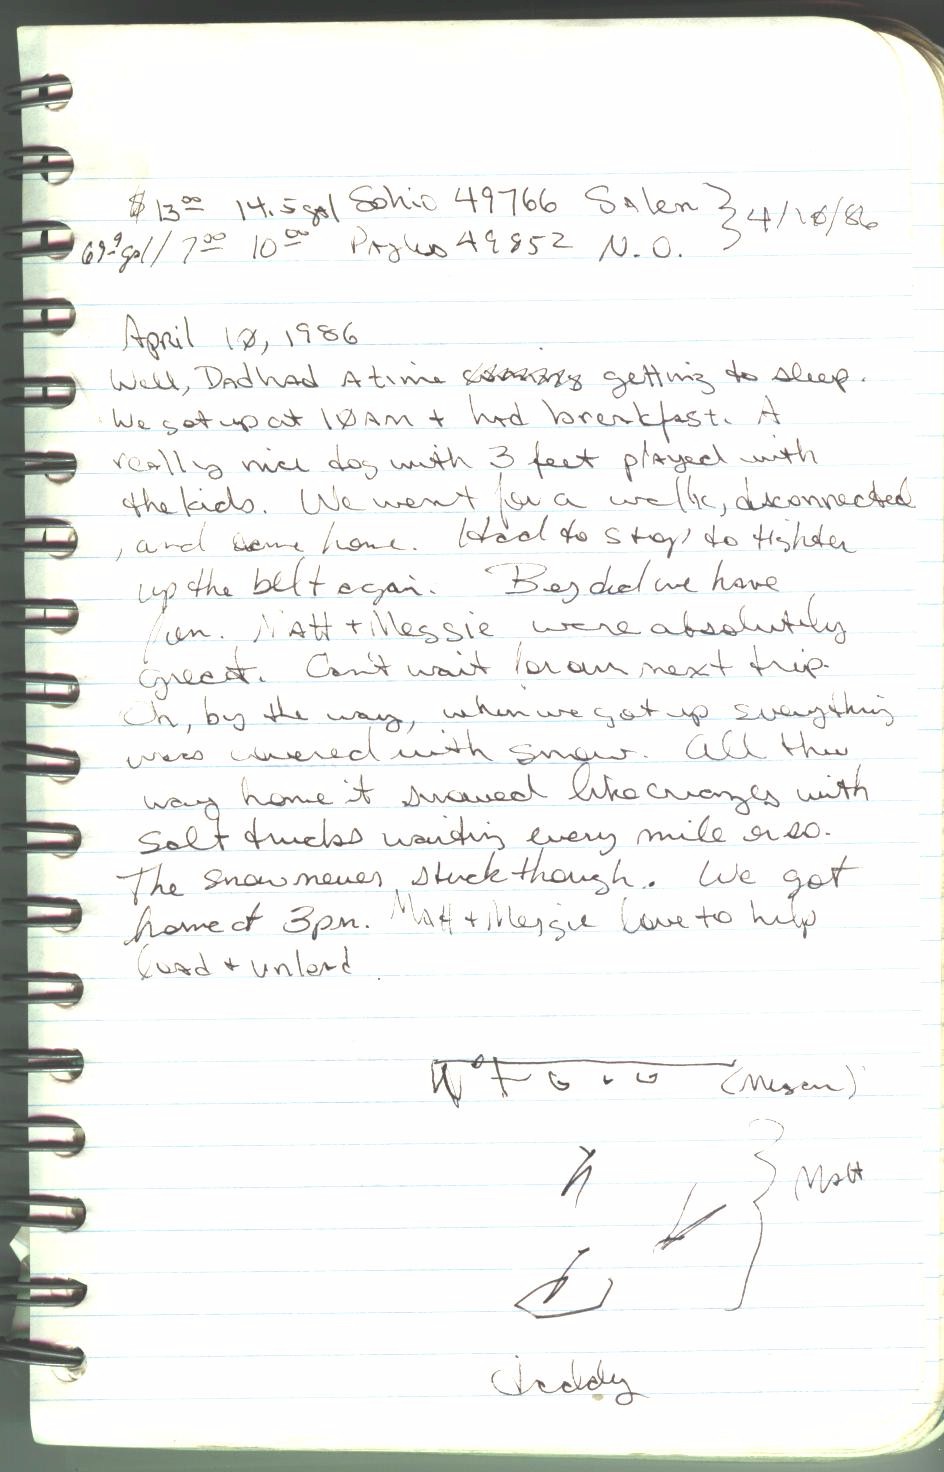 $13⁰⁰ 14.5 gal Sohio 49766 Salem } 4/10/86
69⁹ gal / 7⁰⁰ 10⁰⁰ 49852 N.O.
April 10, 1986
Well, Dad had a time getting to sleep.
We got up at 10AM + had breakfast. A
really nice dog with 3 feet played with
the kids. We went for a walk, disconnected
, and came home. Had to stop to tighten
up the belt again. Boy did we have
fun. Matt + Meggie were absolutely
great. Can't wait for our next trip.
Oh, by the way, when we got up everything
was covered with snow. All the
way home it snowed like crazy with
salt trucks waiting every mile or so.
The snow never stuck though. We got
home at 3pm. Matt + Meggie love to help
load + unload.
(Megan)
Matt
Daddy